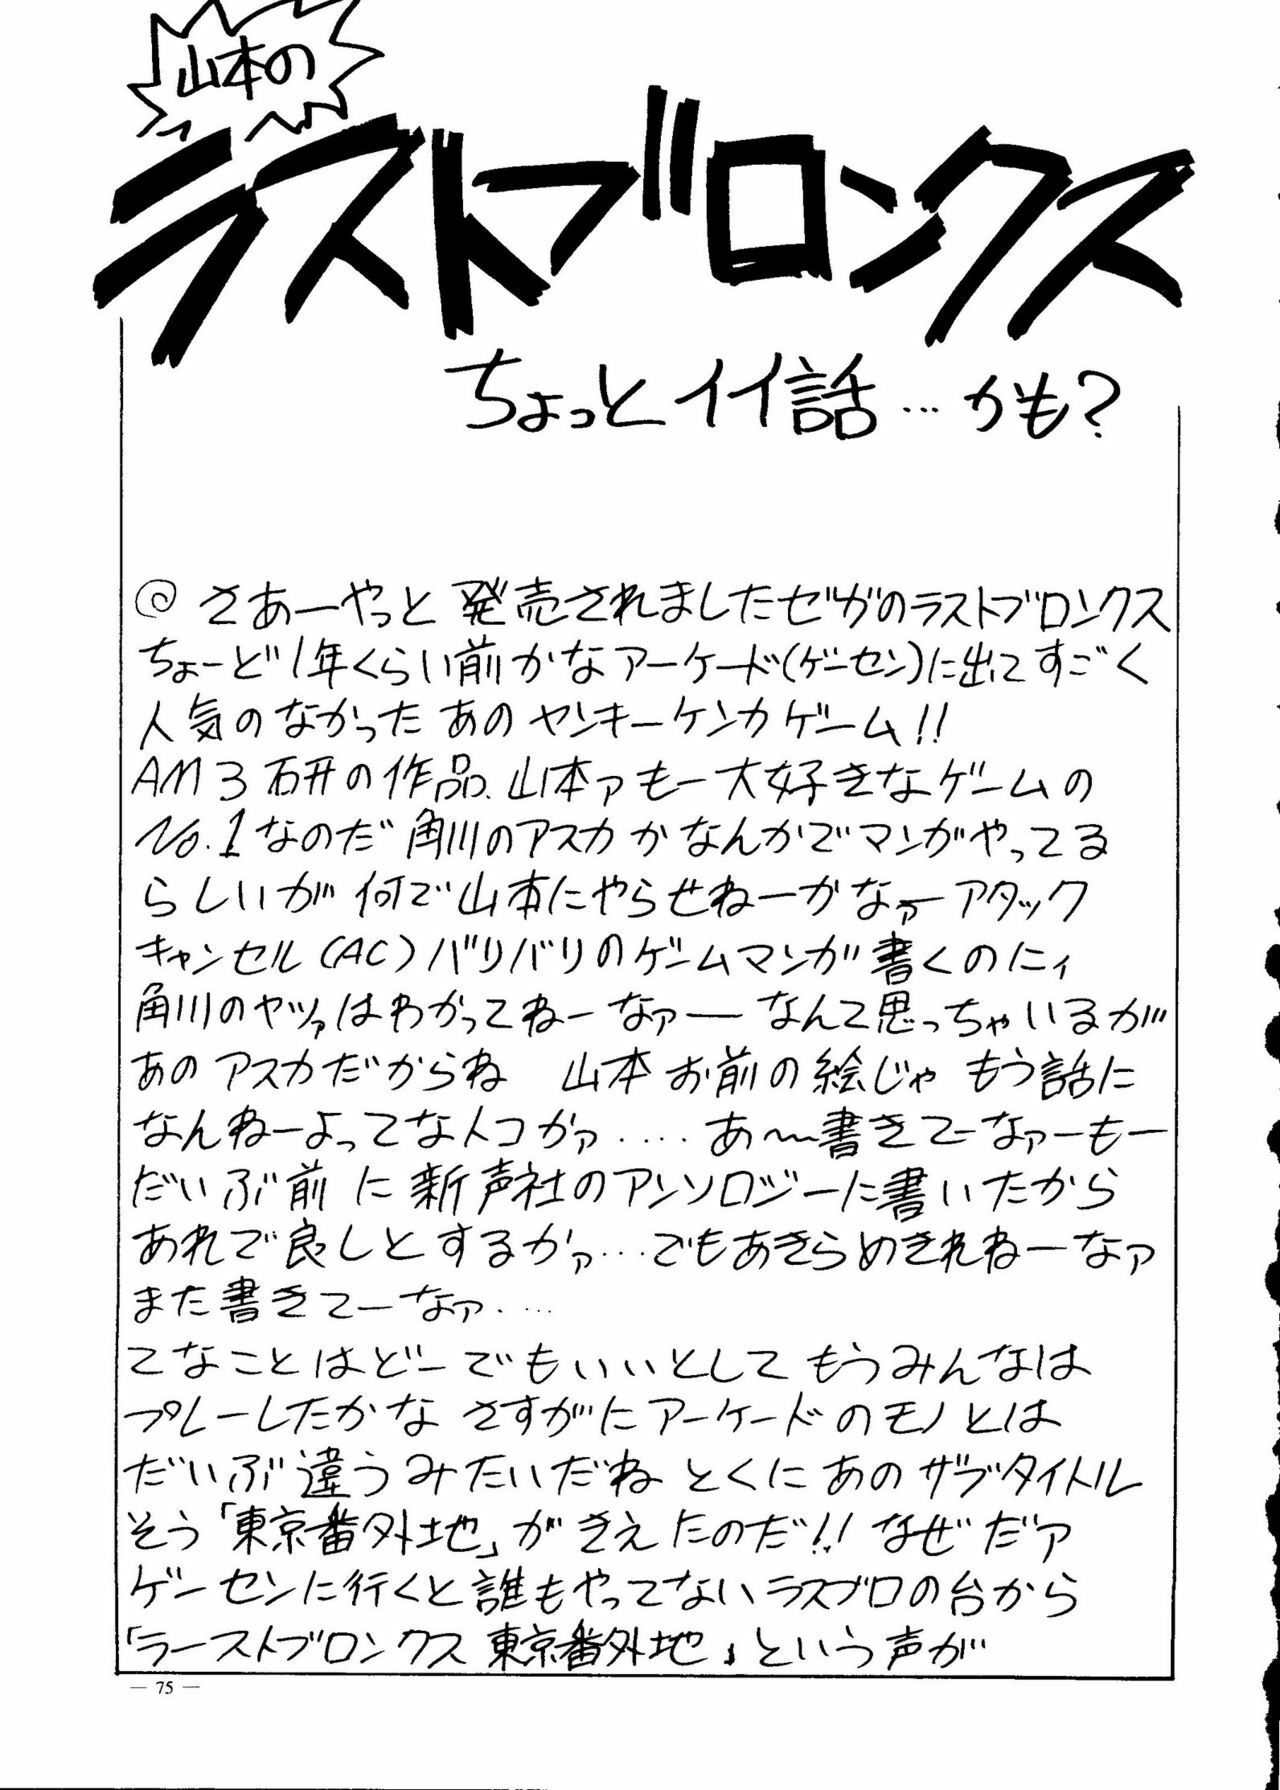 山本の
ラストブロンクス
ちょっとイイ話…かも?
さあーやっと発売されましたセガのラストブロンクス
ちょーど1年くらい前かなアーケード(ゲーセン)に出てすごく
人気のなかったあのヤンキーケンカゲーム!!
AM3研の作品、山本ァもー大好きなゲームの
No.1なのだ 角川のアスカかなんかでマンガやってる
らしいが何で山本にやらせねーかなァーアタック
キャンセル(AC)バリバリのゲームマンガ書くのにィ
角川のヤツァはわかってねーなァーなんて思っちゃいるが
あのアスカだからね 山本お前の絵じゃもう話に
なんねーよってなトコかァ‥‥あ〜書きてーなァーもー
だいぶ前に新声社のアンソロジーに書いたから
あれで良しとするかァ…でもあきらめきれねーなァ
また書きてーなァ‥‥
てなことはどーでもいいとしてもうみんなは
プレーしたかな さすがにアーケードのモノとは
だいぶ違うみたいだね とくにあのサブタイトル
そう「東京番外地」がきえたのだ!!なぜだァ
ゲーセンに行くと誰もやってないラスブロの台から
「ラーストブロンクス 東京番外地」という声が
— 75 —